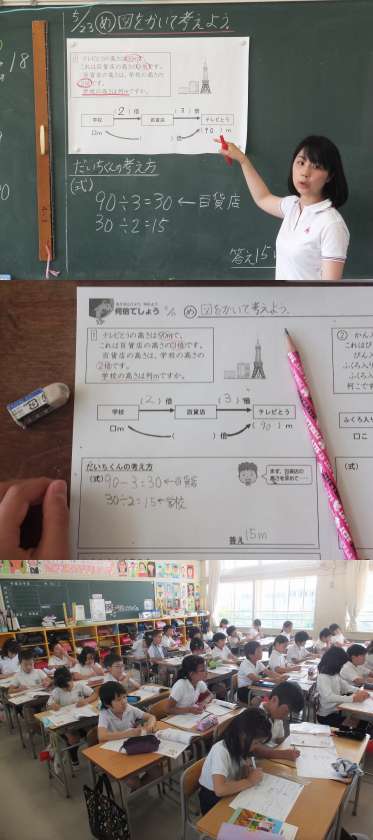 5/23 め 図をかいて考えよう。
18
1
テレビとうの高さは90mで、
これは百貨店の高さの3倍です。
百貨店の高さは、学校の高さの
2倍です。
学校の高さは何mですか。
(2)倍
(3)倍
学校
百貨店
テレビとう
□m
( )倍
(90)m
だいちくんの考え方
(式)
90÷3=30←百貨店
30÷2=15
答え15
何倍でしょう
め 図をかいて考えよう。
1
テレビとうの高さは90mで、
これは百貨店の高さの3倍です。
百貨店の高さは、学校の高さの
2倍です。
学校の高さは何mですか。
2
(2)倍
(3)倍
学校
百貨店
テレビとう
□m
( )倍
(90)m
だいちくんの考え方
(式)90÷3=30←百貨店
30÷2=15←学校
まず、百貨店の
高さを求めて……
答え 15m
これはび
ふくろ入り
何こです
ふくろ入り
□こ
(式)